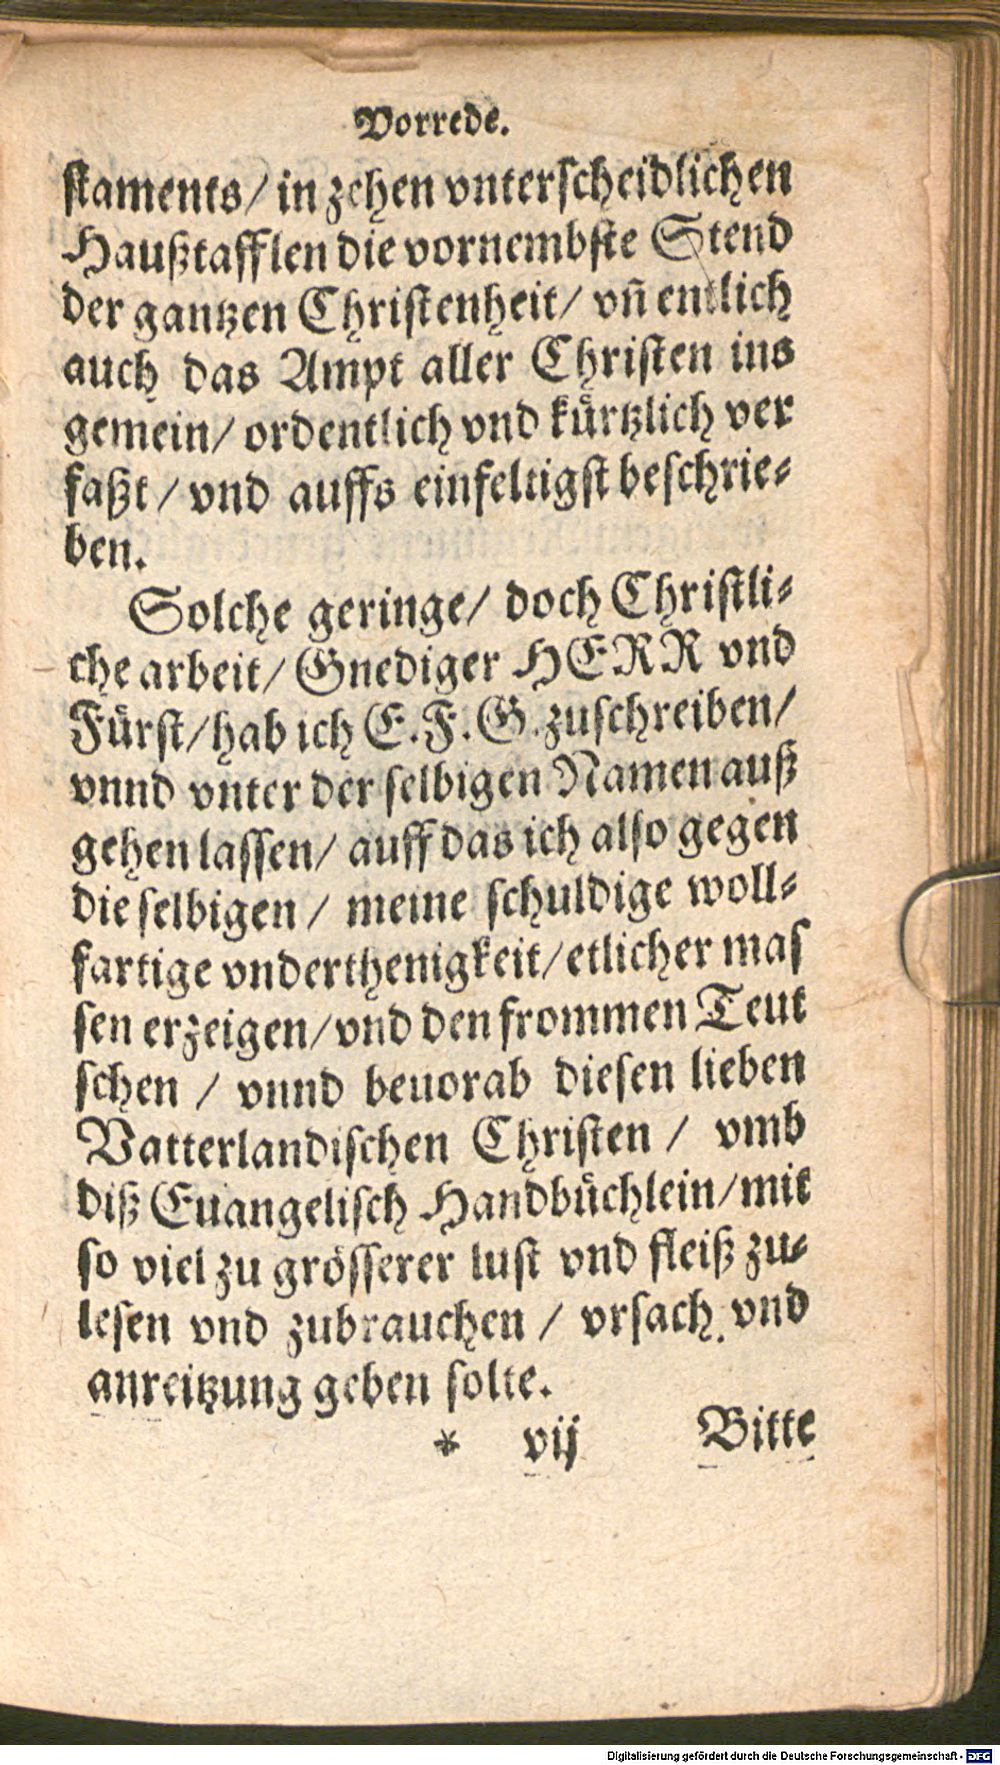 Vorrede.
ſtaments/ in zehen vnterſcheidlichen
Haußtafflen die vornembſte Stend
der gantzen Chriſtenheit/ vñ endlich
auch das Ampt aller Chriſten ins
gemein/ ordentlich vnd kürtzlich ver
faßt / vnd auffs einfeltigſt beſchrie⸗
ben.
Solche geringe/ doch Chriſtli⸗
che arbeit/ Gnediger HERR vnd
Fürſt/ hab ich E.F.G. zuſchreiben/
vnnd vnter der ſelbigen Namen auß
gehen laſſen/ auff das ich alſo gegen
die ſelbigen / meine ſchuldige woll⸗
fartige vnderthenigkeit/ etlicher maſ
ſen erzeigen/ vnd den frommen Teut
ſchen / vnnd beuorab dieſen lieben
Vatterlandiſchen Chriſten / vmb
diß Euangeliſch Handbüchlein/ mit
ſo viel zu gröſſerer luſt vnd fleiß zu⸗
leſen vnd zubrauchen / vrſach vnd
anreitzung geben ſolte.
* vij Bitte
Digitalisierung gefördert durch die Deutsche Forschungsgemeinschaft - DFG